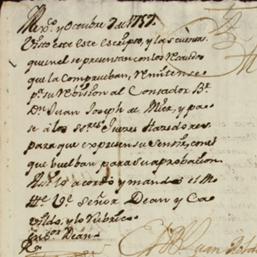 Mexco. y Octubre 7 de 1757.
Visto este este escripto, y las cuentas
que en el se presentan con los Recados
que la comprueban, Remitense
pa. su Revission al Contador Br.
Dn. Juan Joseph de Mier, y pase
se a los Sres. Jueces Hazedores
para que expresen su sentir, con el
que buelban para su aprobacion.
Assi lo acordò y mandò el Illmo
Ve. Señor Dean y Ca-
vildo, y lo Rubricò
Dean